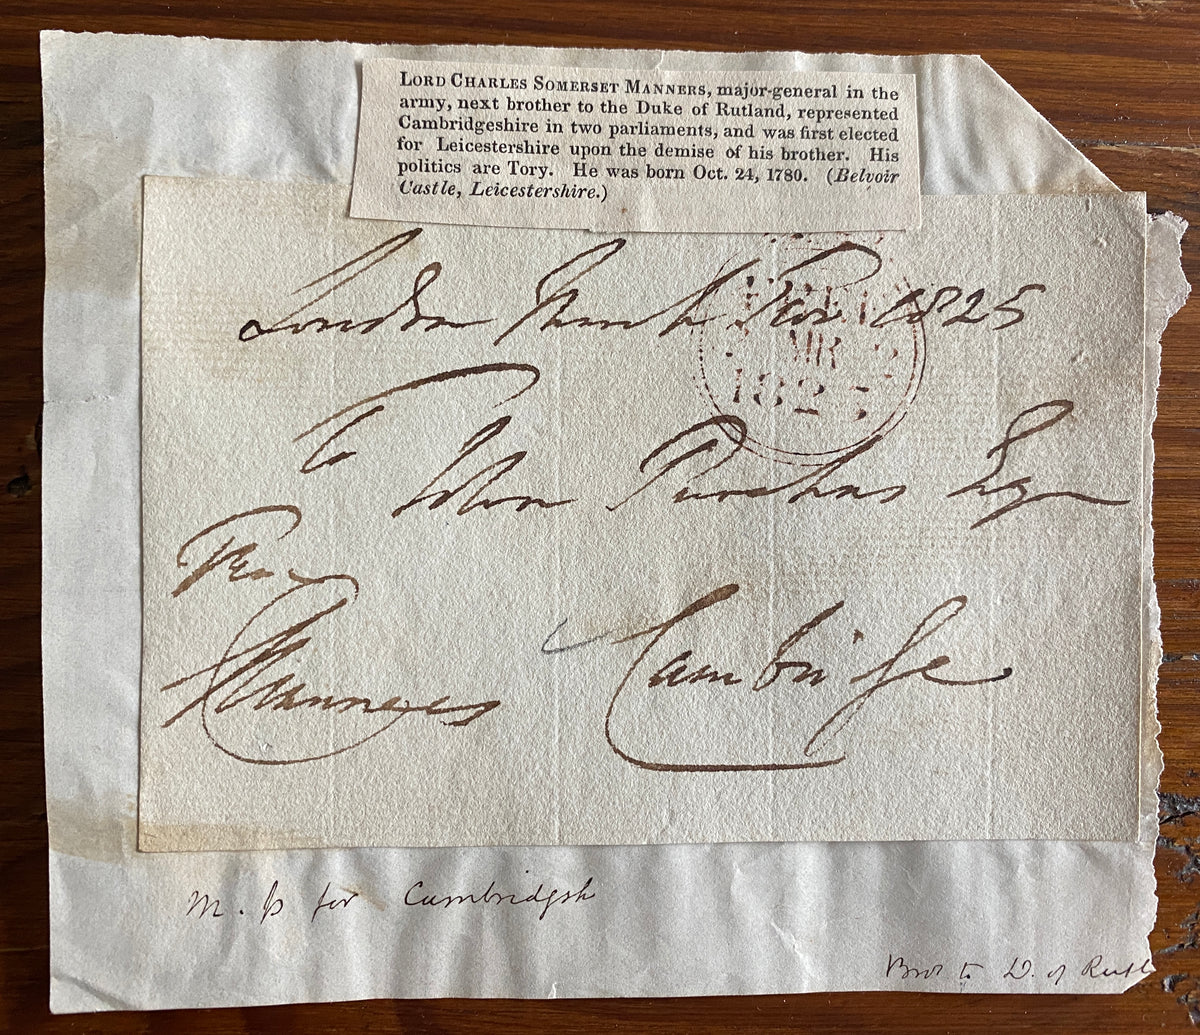 LORD CHARLES SOMERSET MANNERS, major-general in the
army, next brother to the Duke of Rutland, represented
Cambridgeshire in two parliaments, and was first elected
for Leicestershire upon the demise of his brother. His
politics are Tory. He was born Oct. 24, 1780. (Belvoir
Castle, Leicestershire.)
London March Five 1825
MR
1825
To
John Purchas Esqr
Free
CManners
Cambridge
M. P for Cambridgsh
Bror to D. of Rutl